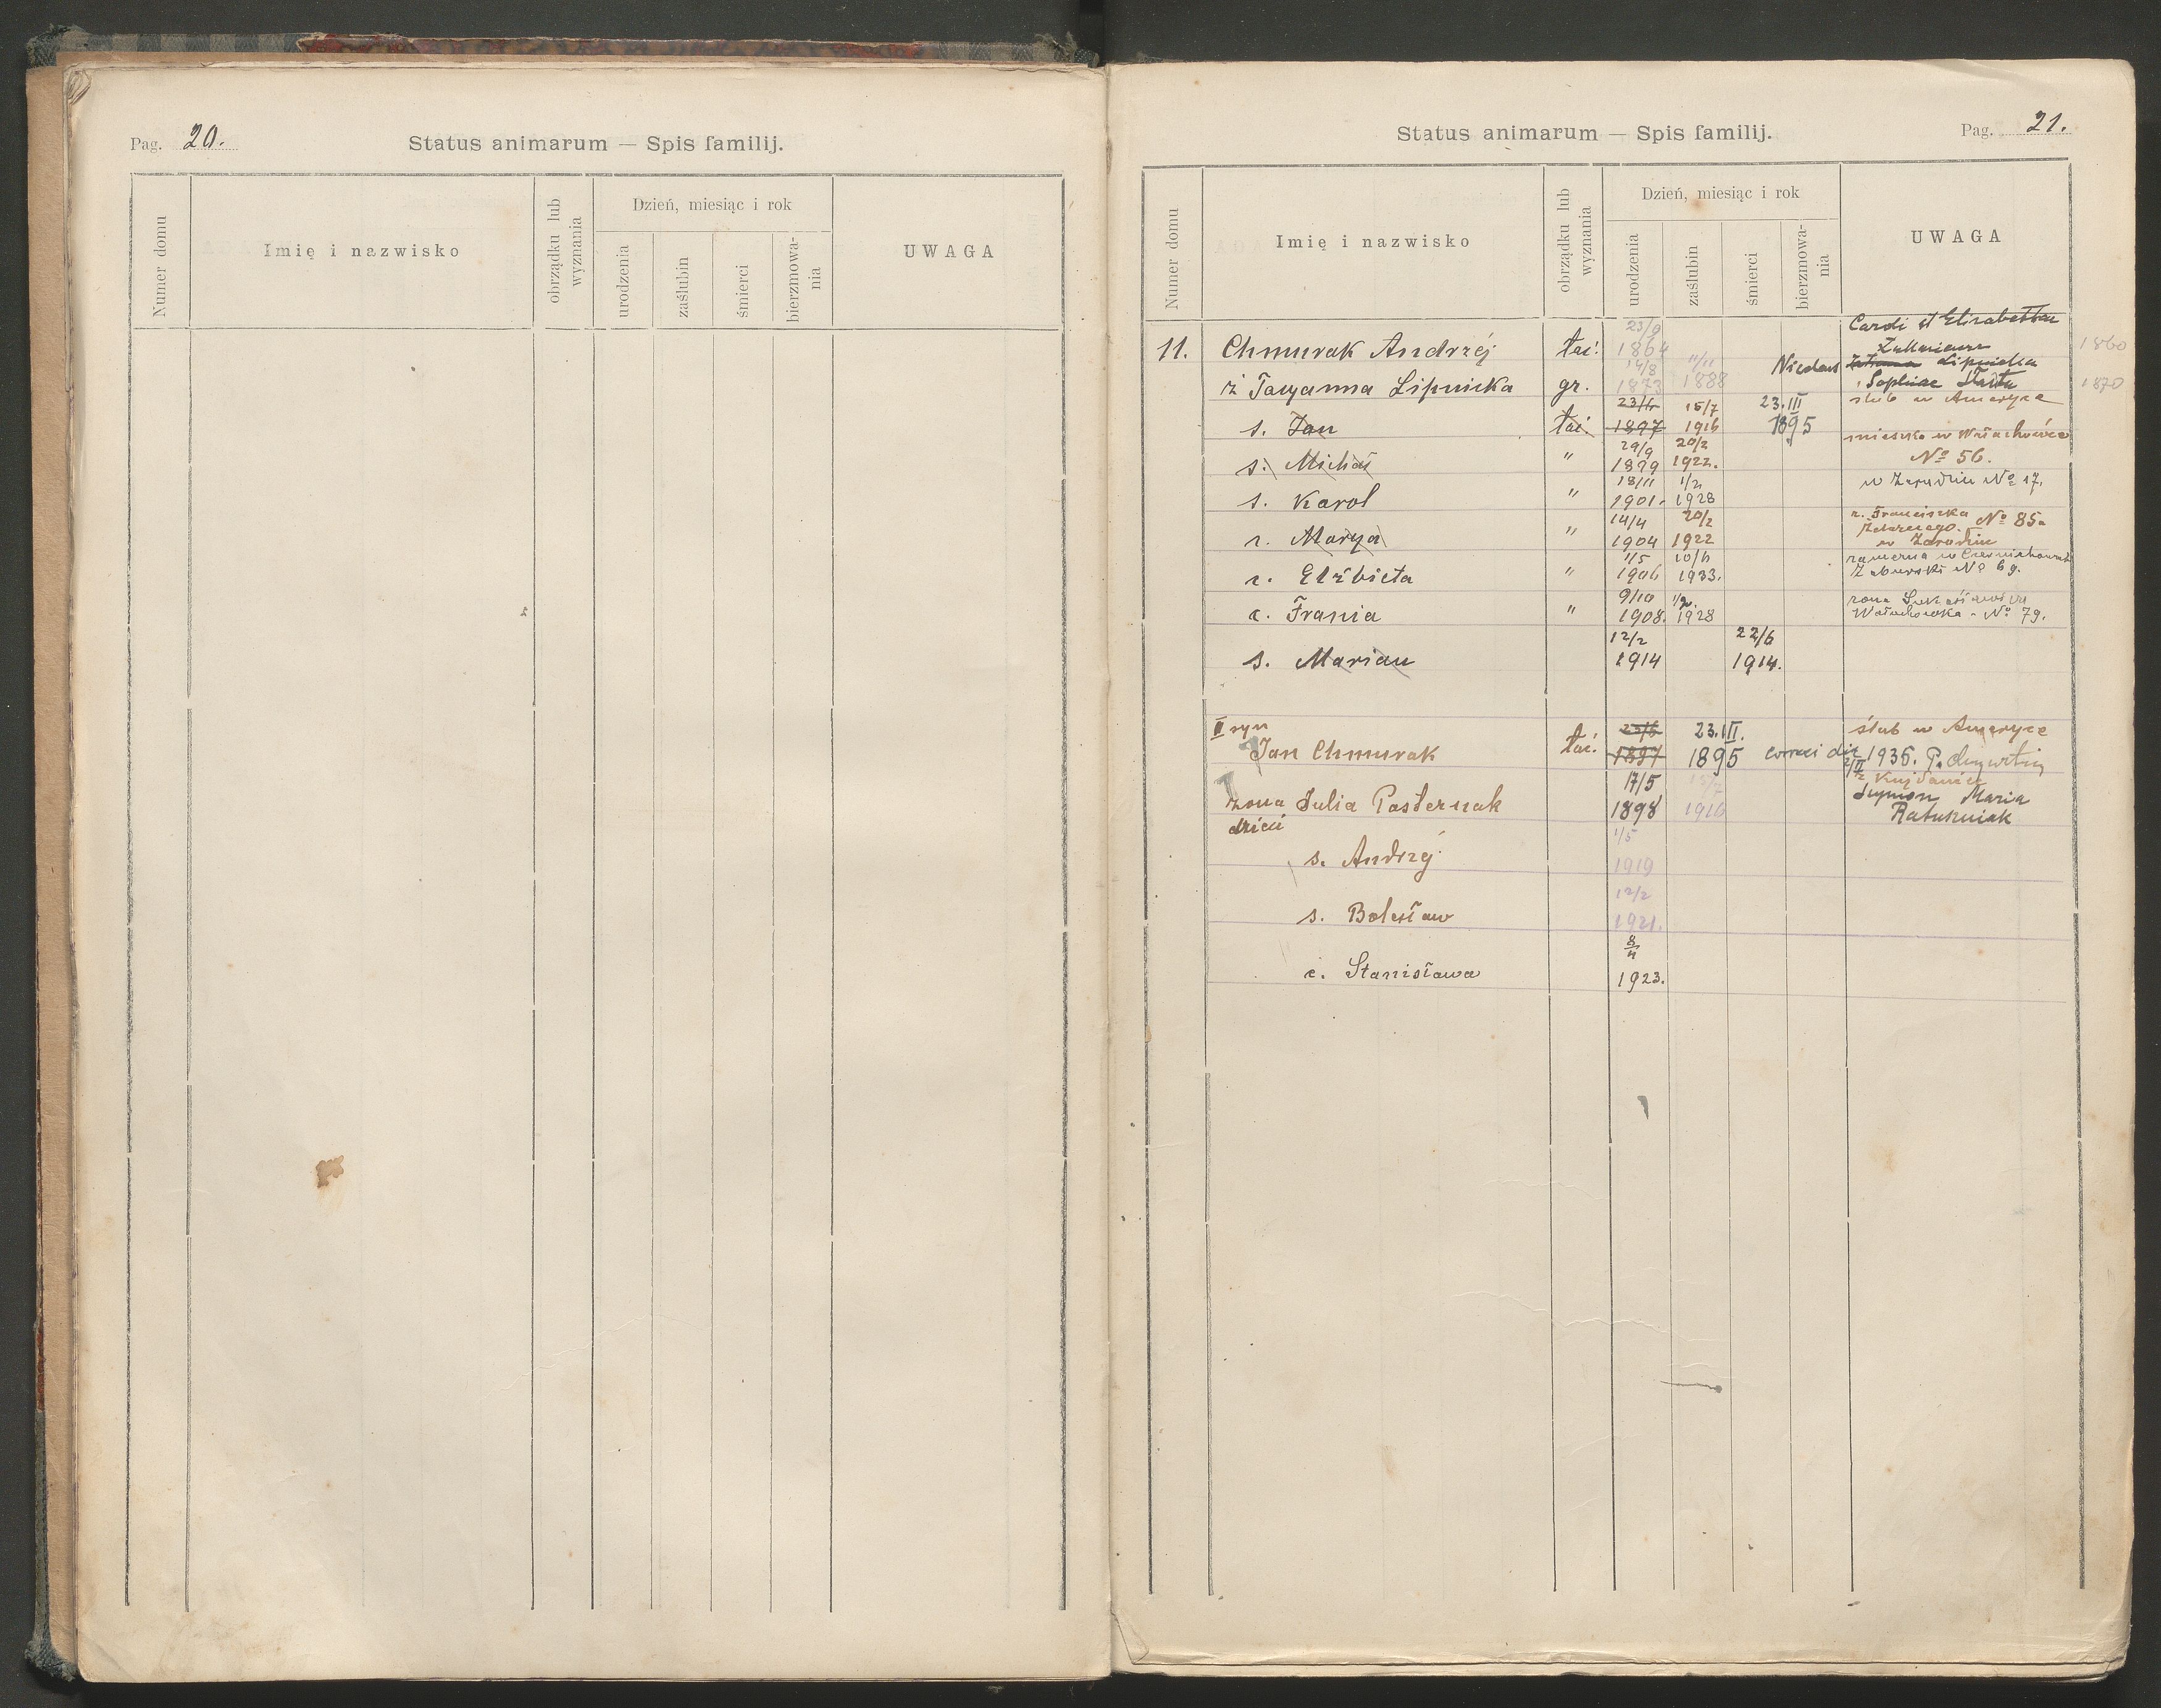 Pag. 20.
Status animarum — Spis familij.
Numer domu
Imię i nazwisko
obrządku lub wyznania
Dzień, miesiąc i rok
urodzenia
zaślubin
śmierci
bierzmowa-
nia
UWAGA
Status animarum — Spis familij.
Pag. 21.
Numer domu
Imię i nazwisko
obrządku lub wyznania
Dzień, miesiąc i rok
urodzenia
zaślubin
śmierci
bierzmowa-
nia
UWAGA
Caroli et Elisabetha
23/9
11. Chmurak Andrzéj łać. 1864 1860
14/8 11/11 Lipnicka
ż Tacyanna Lipnicka gr. 1873 1888 Sophiae 1870
23/6 15/7 23.III ślub w Ameryce
s. Jan łać. 1897 1916 1895
29/9 20/2 mieszka w Wałachówce
s. Michał " 1899 1922. No 56.
18/11 1/2 No 17.
s. Karol " 1901. 1928
14/4 20/2 Franciszka No 85a
c. Marya " 1904 1922
1/5 10/6
c. Elżbieta " 1906 1933. No 69.
9/10
c. Frania " 1908. 1928 No 79.
12/2 22/6
s. Marian 1914 1914.
II syn 23/6 23.III. ślub w Ameryce
Jan Chmurak łać. 1897 1895 1936.
17/5 15/7
żona Julia Pasternak 1898 1916 Szymon Maria
dzieci Ratuszniak
1/5
s. Andrzej 1919
12/2
s. Bolesław 1921.
8/11
c. Stanisława 1923.